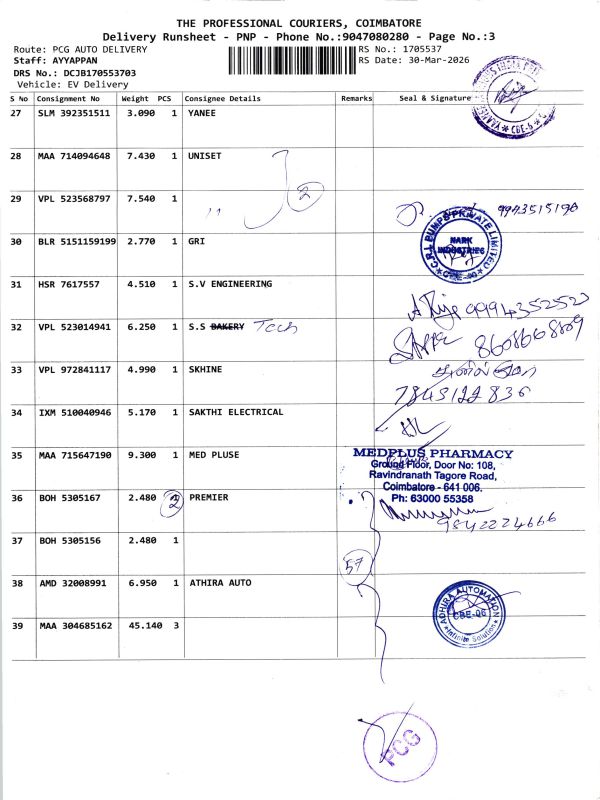 THE PROFESSIONAL COURIERS, COIMBATORE
Delivery Runsheet - PNP - Phone No.:9047080280 - Page No.:3
Route: PCG AUTO DELIVERY
RS No.: 1705537
Staff: AYYAPPAN
RS Date: 30-Mar-2026
DRS No.: DCJB170553703
Vehicle: EV Delivery
S No Consignment No Weight PCS Consignee Details Remarks Seal & Signature
27 SLM 392351511 3.090 1 YANEE
CBE-6
28 MAA 714094648 7.430 1 UNISET
2
29 VPL 523568797 7.540 1
,, 9943515190
30 BLR 5151159199 2.770 1 GRI
C.R.I. PUMPS PRIVATE LIMITED
NARK
INDUSTRIES
31 HSR 7617557 4.510 1 S.V ENGINEERING
9994352520
32 VPL 523014941 6.250 1 S.S BAKERY Tech
8608668809
33 VPL 972841117 4.990 1 SKHINE
7845122836
34 IXM 510040946 5.170 1 SAKTHI ELECTRICAL
35 MAA 715647190 9.300 1 MED PLUSE
MEDPLUS PHARMACY
Ground Floor, Door No: 108,
Ravindranath Tagore Road,
Coimbatore - 641 006.
Ph: 63000 55358
36 BOH 5305167 2.480 2 PREMIER
9842224666
37 BOH 5305156 2.480 1
57
38 AMD 32008991 6.950 1 ATHIRA AUTO
ADHIRA AUTOMATION
CBE-06
Infinite Solution
39 MAA 304685162 45.140 3
PCG